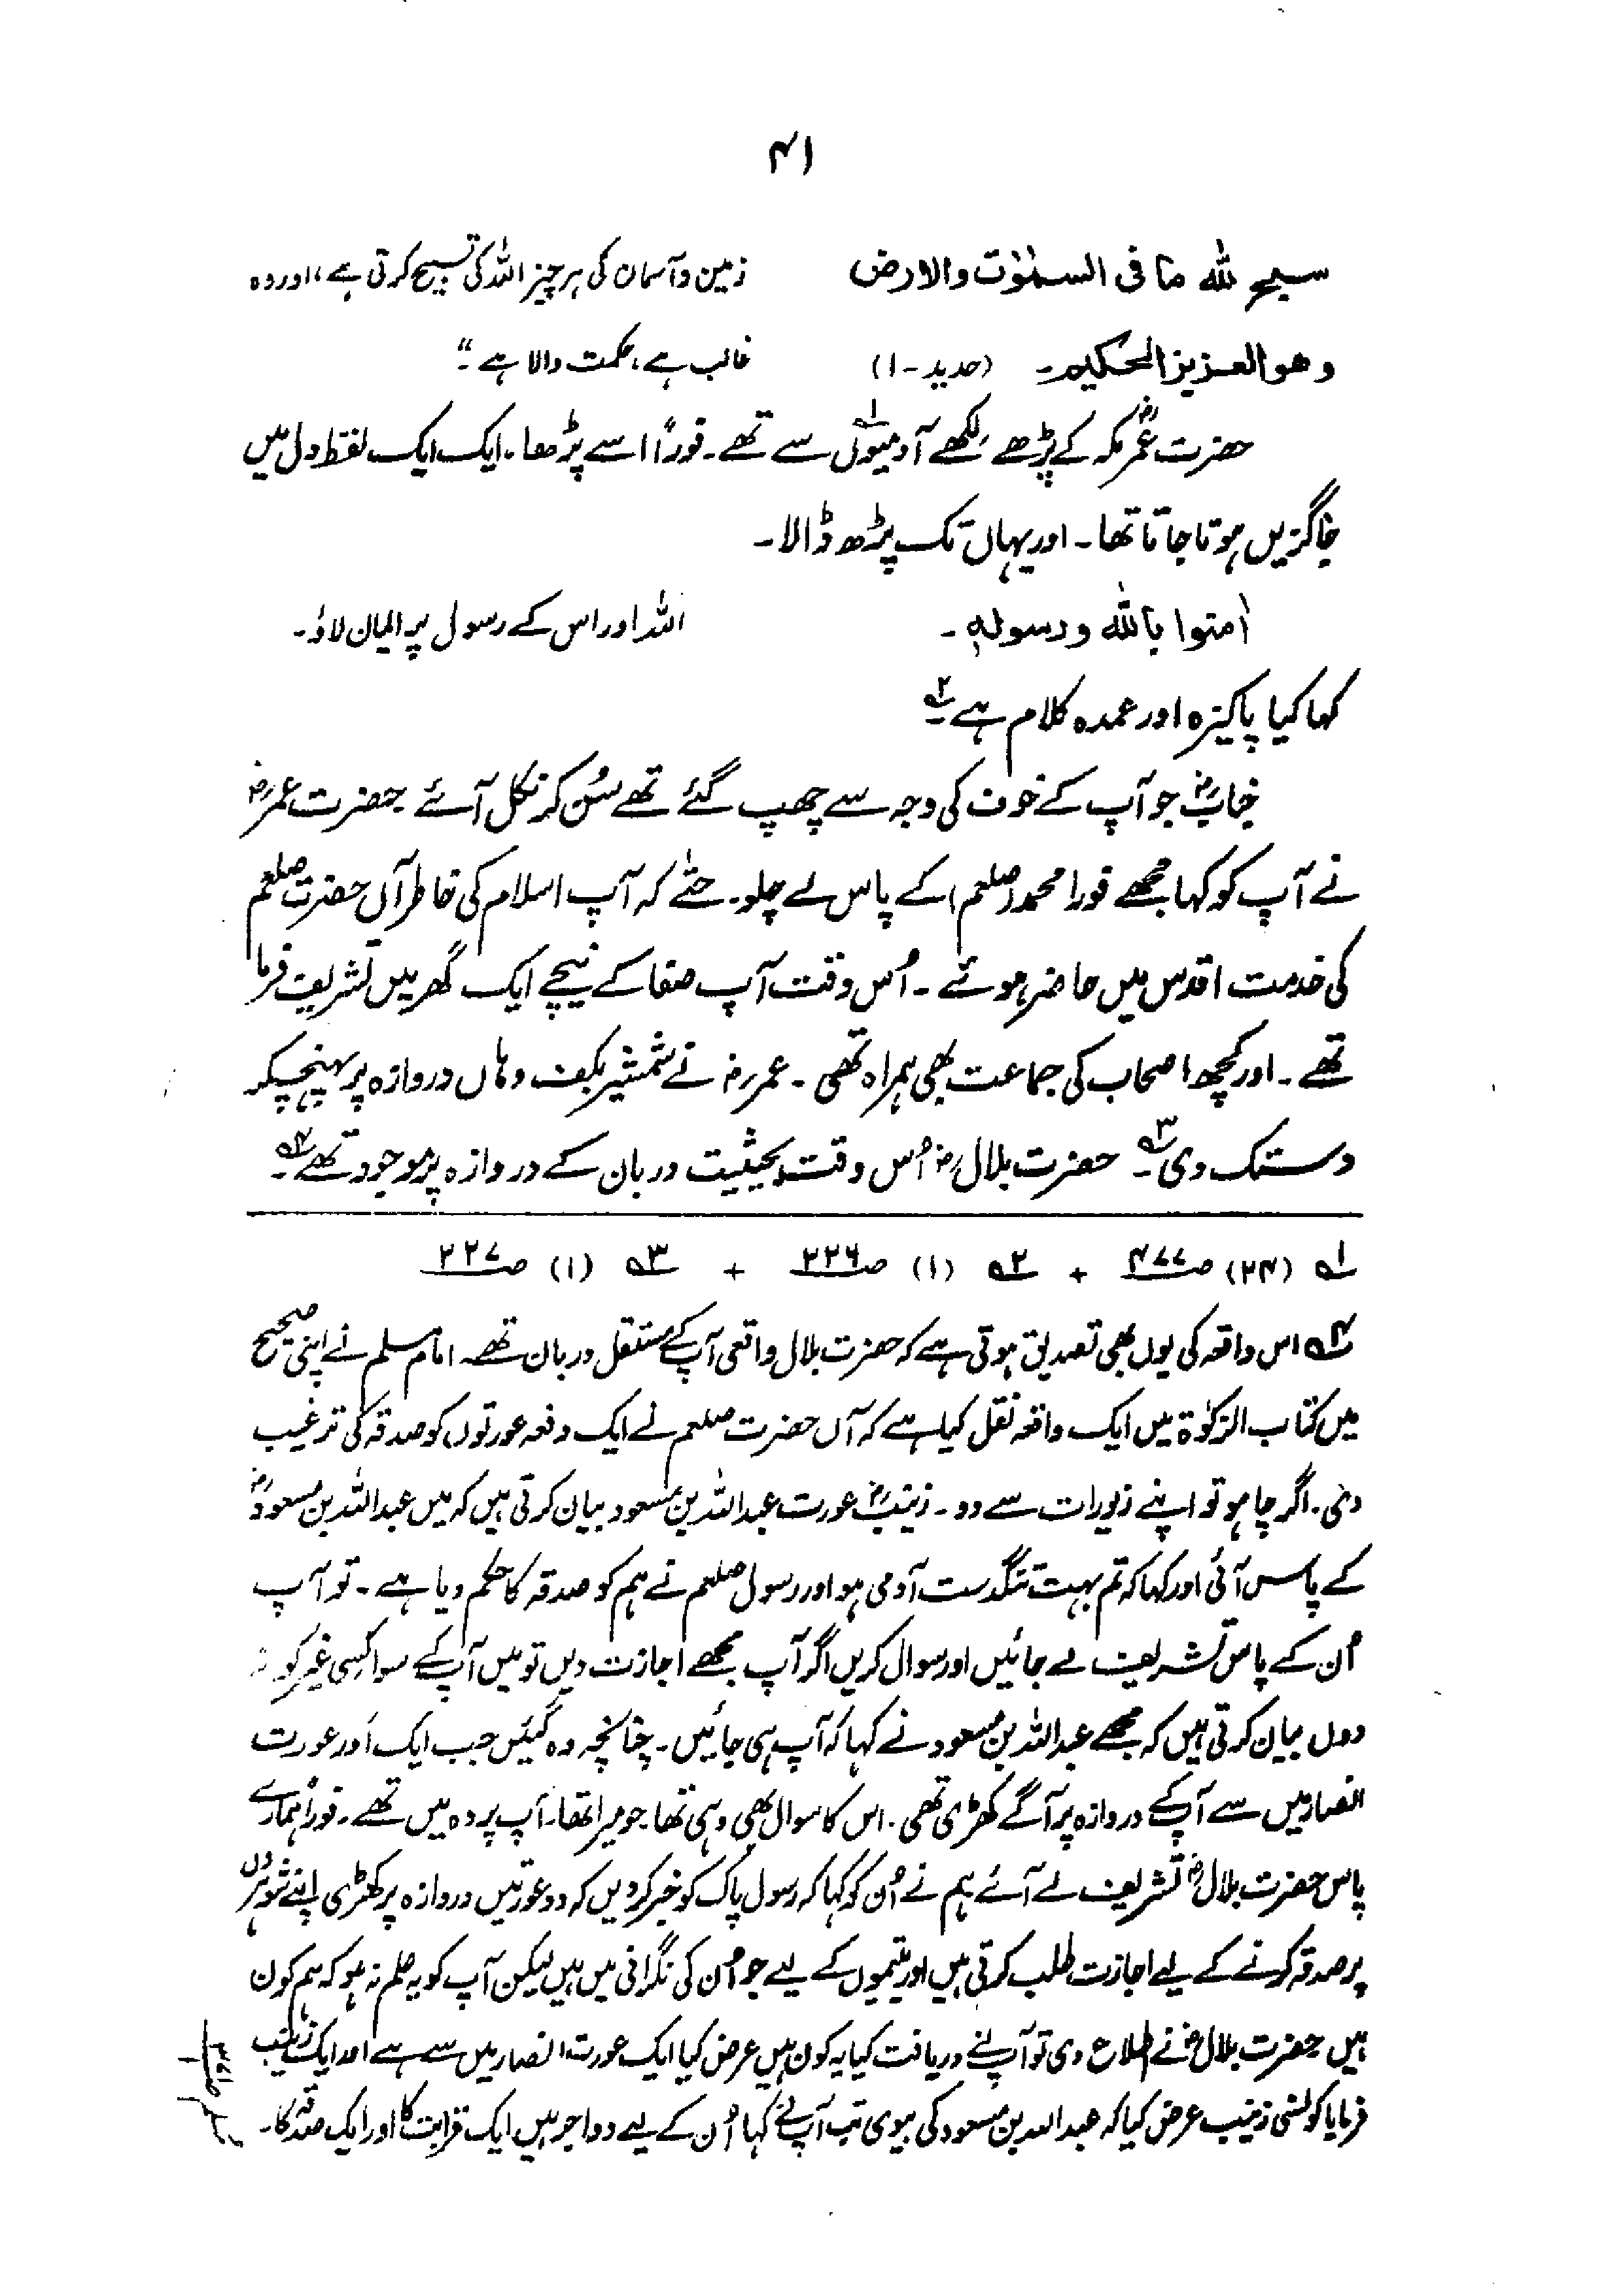 ۴۱
سبح لله ما فی السمٰوٰت والارض زمین و آسمان کی ہر چیز اللہ کی تسبیح کرتی ہے، اور وہ
وھو العزیز الحکیم۔ (حدید - ۱) غالب ہے، حکمت والا ہے۔"
حضرت عمرؓ مکہ کے پڑھے لکھے آدمیوں۱ سے تھے۔ فوراً اسے پڑھا، ایک ایک لفظ دل میں
جاگزیں ہوتا جاتا تھا۔ اور یہاں تک پڑھ ڈالا۔
اٰمنوا باللہ و رسولہٖ۔ اللہ اور اس کے رسول پر ایمان لاؤ۔
کہا کیا پاکیزہ اور عمدہ کلام ہے۔۲
خبابؓ جو آپ کے خوف کی وجہ سے چھپ گئے تھے سُن کر نکل آئے حضرت عمرؓ
نے آپ کو کہا مجھے فورا محمد (صلعم) کے پاس لے چلو۔ حتٰے کہ آپ اسلام کی خاطر آں حضرت صلعم
کی خدمت اقدس میں حاضر ہوئے۔ اُس وقت آپ صفا کے نیچے ایک گھر میں تشریف فرما
تھے۔ اور کچھ اصحاب کی جماعت بھی ہمراہ تھی۔ عمرؓ نے شمشیر بکف وہاں دروازہ پر پہنچکر
دستک دی۔۳ حضرت بلالؓ اُس وقت بحیثیت دربان کے دروازہ پر موجود تھے۔۴
۱ (۲۴) صـ ۴۷۷ + ۲ (۱) صـ ۲۲۶ + ۳ (۱) صـ ۲۲۷
۴ اس واقعہ کی یوں بھی تصدیق ہوتی ہے کہ حضرت بلال واقعی آپ کے مستقل دربان تھے۔ امام مسلم نے اپنی صحیح
میں کتاب الزکوٰۃ میں ایک واقعہ نقل کیا ہے کہ آں حضرت صلعم نے ایک دفعہ عورتوں کو صدقہ کی ترغیب
دی۔ اگر چاہو تو اپنے زیورات سے دو۔ زینبؓ عورت عبداللہ بن مسعود بیان کرتی ہیں کہ میں عبداللہ بن مسعودؓ
کے پاس آئی اور کہا کہ تم بہت تنگدست آدمی ہو اور رسول صلعم نے ہم کو صدقہ کا حکم دیا ہے۔ تو آپ
اُن کے پاس تشریف لے جائیں اور سوال کریں اگر آپ مجھے اجازت دیں تو میں آپ کے سوا کسی غیر کو نہ
دوں بیان کرتی ہیں کہ مجھے عبداللہ بن مسعود نے کہا کہ آپ ہی جائیں۔ چنانچہ وہ گئیں جب ایک اَور عورت
انصار میں سے آپ کے دروازہ پر آگے کھڑی تھی۔ اس کا سوال بھی وہی تھا جو میرا تھا۔ آپ پردہ میں تھے۔ فوراً ہمارے
پاس حضرت بلالؓ تشریف لے آئے ہم نے اُن کو کہا کہ رسول پاک کو خبر کردیں کہ دو عورتیں دروازہ پر کھڑی اپنے شوہروں
پر صدقہ کرنے کے لیے اجازت طلب کرتی ہیں اور یتیموں کے لیے جو اُن کی نگرانی میں ہیں لیکن آپ کو یہ علم نہ ہو کہ ہم کون
ہیں حضرت بلالؓ نے اطلاع دی تو آپ نے دریافت کیا یہ کون ہیں عرض کیا ایک عورت انصار میں سے ہے اور ایک زینب
فرمایا کونسی زینب عرض کیا کہ عبداللہ بن مسعود کی بیوی تب آپ نے کہا اُن کے لیے دو اجر ہیں ایک قرابت کا اور ایک صدقہ کا۔